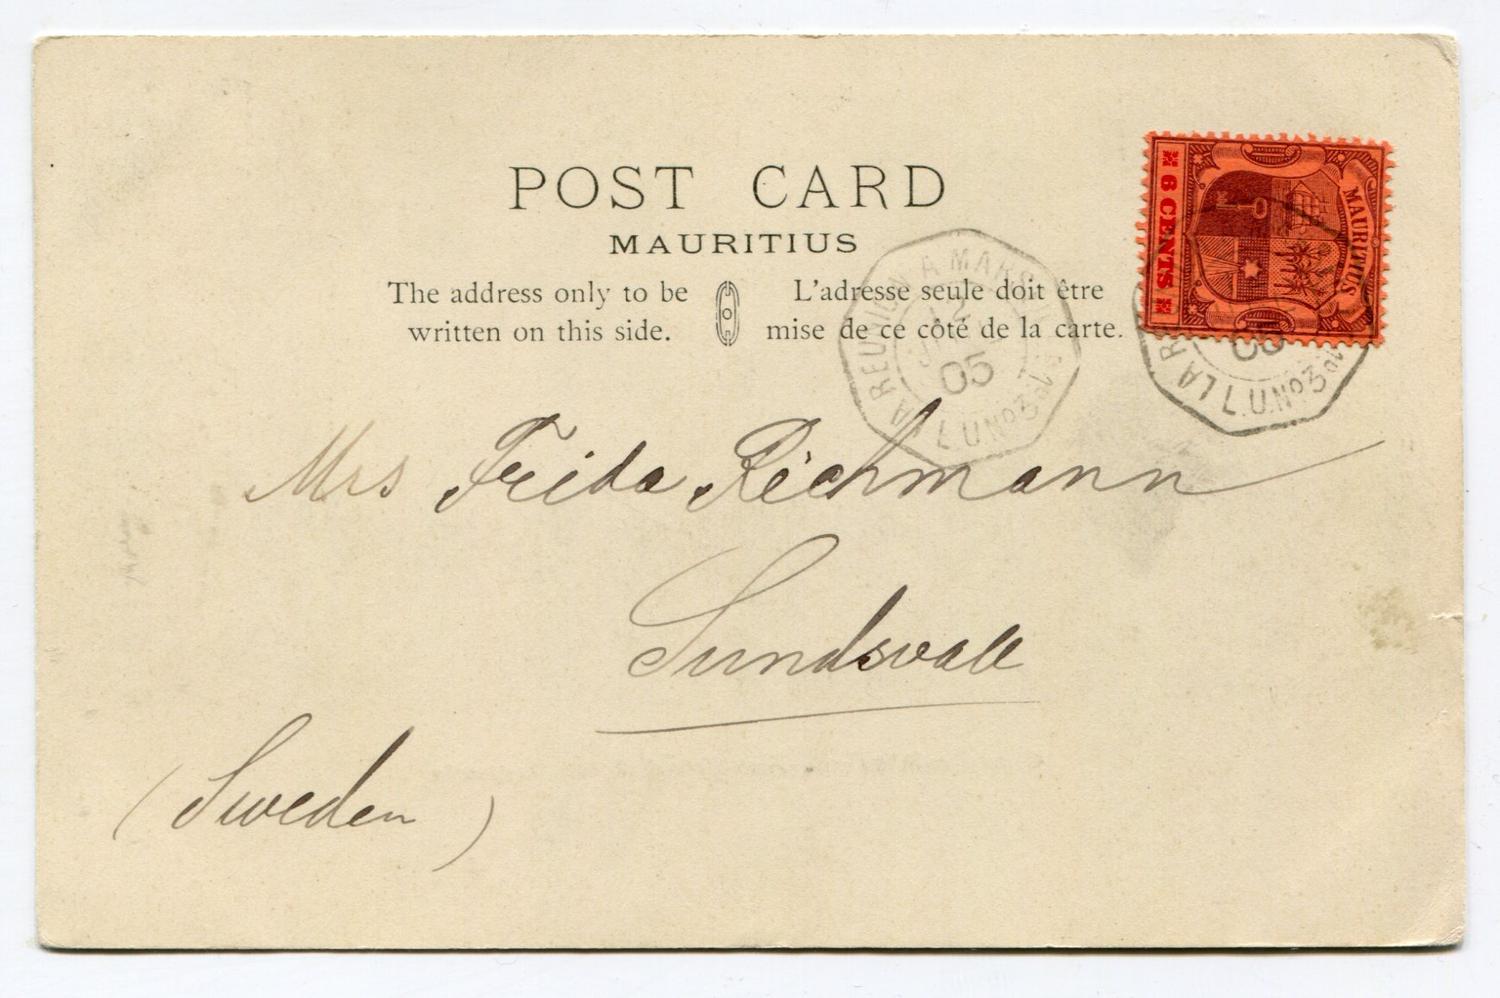 POST CARD
MAURITIUS
The address only to be
written on this side.
L'adresse seule doit être
mise de ce côté de la carte.
LA REUNION A MARS
12
05
L.U.Nº3
6 CENTS
MAURITIUS
LA R
L.U.Nº3
Mrs Frida Richmann
Sundsvall
(Sweden)